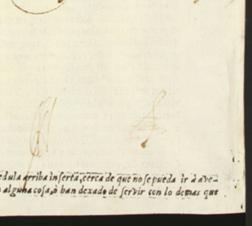 edula arriba inserta, cerca de que no se pueda ir à ave-
alguna cosa, ò han dexado de servir con lo demas que